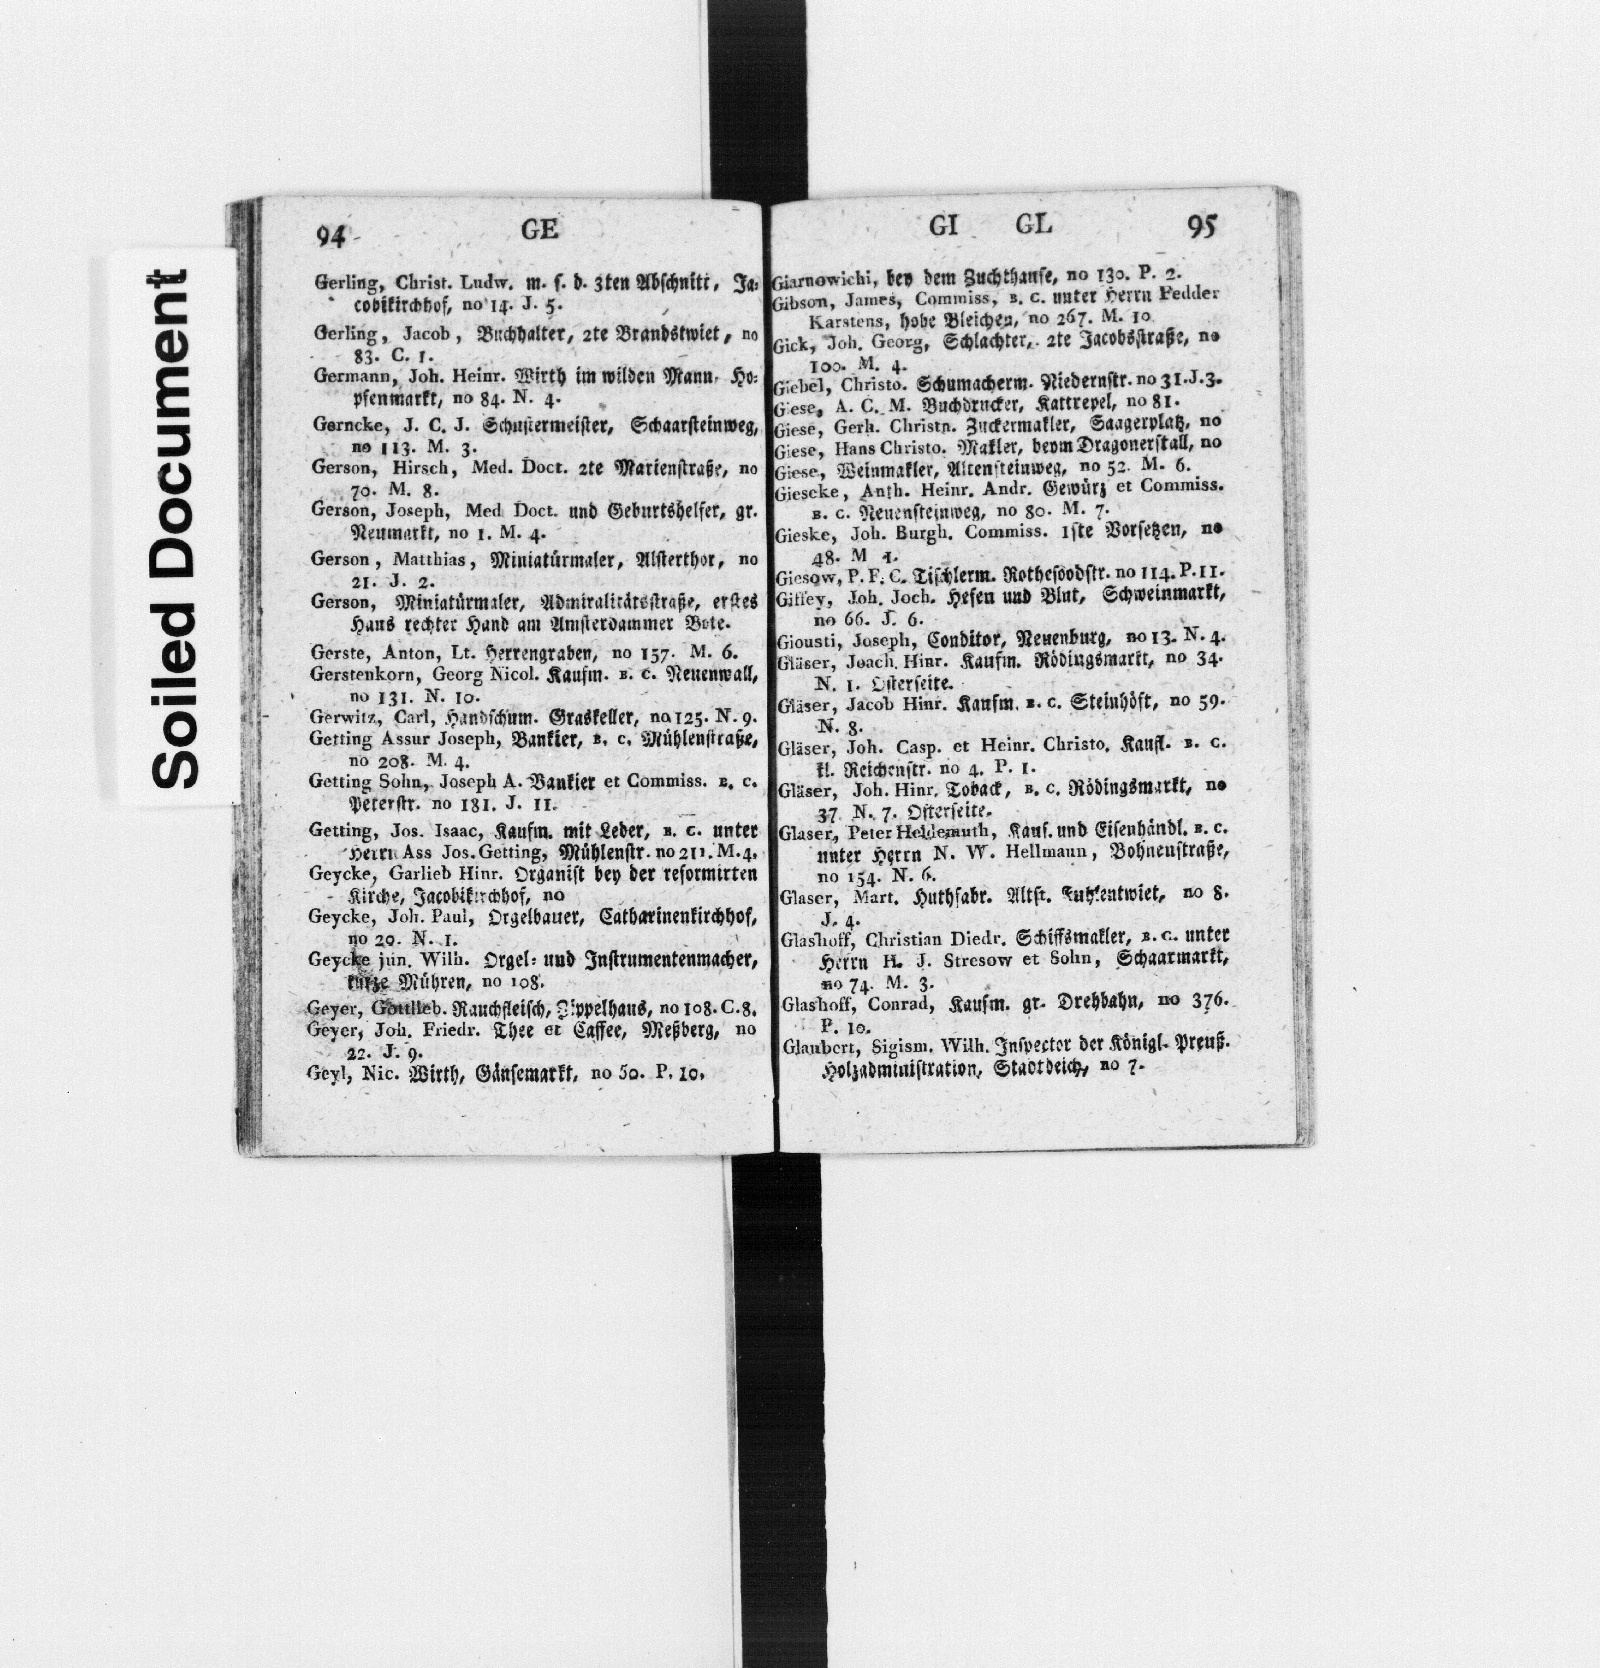 Soiled Document
94 GE
Gerling, Christ. Ludw. m. s. d. 3ten Abschnitt, Ja-
cobikirchhof, no 14. J. 5.
Gerling, Jacob, Buchhalter, 2te Brandstwiet, no
83. C. 1.
Germann, Joh. Heinr. Wirth im wilden Mann, Ho-
pfenmarkt, no 84. N. 4.
Gerncke, J. C. J. Schustermeister, Schaarsteinweg,
no 113. M. 3.
Gerson, Hirsch, Med. Doct. 2te Marienstraße, no
70. M. 8.
Gerson, Joseph, Med Doct. und Geburtshelfer, gr.
Neumarkt, no 1. M. 4.
Gerson, Matthias, Miniatürmaler, Alsterthor, no
21. J. 2.
Gerson, Miniatürmaler, Admiralitätsstraße, erstes
Haus rechter Hand am Amsterdammer Bote.
Gerste, Anton, Lt. Herrengraben, no 157. M. 6.
Gerstenkorn, Georg Nicol. Kaufm. B. C. Neuenwall,
no 131. N. 10.
Gerwitz, Carl, Handschum. Graskeller, no 125. N. 9.
Getting Assur Joseph, Bankier, B. C. Mühlenstraße,
no 208. M. 4.
Getting Sohn, Joseph A. Bankier et Commiss. B. C.
Peterstr. no 181. J. 11.
Getting, Jos. Isaac, Kaufm. mit Leder, B. C. unter
Herrn Ass Jos. Getting, Mühlenstr. no 211. M. 4.
Geycke, Garlieb Hinr. Organist bey der reformirten
Kirche, Jacobikirchhof, no
Geycke, Joh. Paul, Orgelbauer, Catharinenkirchhof,
no 20. N. 1.
Geycke jun. Wilh. Orgel- und Instrumentenmacher,
kurze Mühren, no 108.
Geyer, Gottlieb. Rauchfleisch, Zippelhaus, no 108. C. 8.
Geyer, Joh. Friedr. Thee et Caffee, Meßberg, no
22. J. 9.
Geyl, Nic. Wirth, Gänsemarkt, no 50. P. 10.
GI GL 95
Giarnowichi, bey dem Zuchthause, no 130. P. 2.
Gibson, James, Commiss, B. C. unter Herrn Fedder
Karstens, hohe Bleichen, no 267. M. 10
Gick, Joh. Georg, Schlachter, 2te Jacobsstraße, no
100. M. 4.
Giebel, Christo. Schumacherm. Niedernstr. no 31. J. 3.
Giese, A. C. M. Buchdrucker, Kattrepel, no 81.
Giese, Gerh. Christn. Zuckermakler, Saagerplatz, no
Giese, Hans Christo. Makler, beym Dragonerstall, no
Giese, Weinmakler, Altensteinweg, no 52. M. 6.
Giescke, Anth. Heinr. Andr. Gewürz et Commiss.
B. C. Neuensteinweg, no 80. M. 7.
Gieske, Joh. Burgh. Commiss. 1ste Vorsetzen, no
48. M 1.
Giesow, P. F. C. Tischlerm. Rothesoodstr. no 114. P. 11.
Giffey, Joh. Joch. Hefen und Blut, Schweinmarkt,
no 66. J. 6.
Giousti, Joseph, Conditor, Neuenburg, no 13. N. 4.
Gläser, Joach. Hinr. Kaufm. Rödingsmarkt, no 34.
N. 1. Osterseite.
Gläser, Jacob Hinr. Kaufm. B. C. Steinhöft, no 59.
N. 8.
Gläser, Joh. Casp. et Heinr. Christo. Kaufl. B. C.
kl. Reichenstr. no 4. P. 1.
Gläser, Joh. Hinr. Toback, B. C. Rödingsmarkt, no
37. N. 7. Osterseite.
Glaser, Peter Heidemuth, Kauf. und Eisenhändl. B. C.
unter Herrn N. W. Hellmann, Bohnenstraße,
no 154. N. 6.
Glaser, Mart. Huthfabr. Altst. Fuhlentwiet, no 8.
J. 4.
Glashoff, Christian Diedr. Schiffsmakler, B. C. unter
Herrn H. J. Stresow et Sohn, Schaarmarkt,
no 74. M. 3.
Glashoff, Conrad, Kaufm. gr. Drehbahn, no 376.
P. 10.
Glaubert, Sigism. Wilh. Inspector der Königl. Preuß.
Holzadministration, Stadtdeich, no 7.